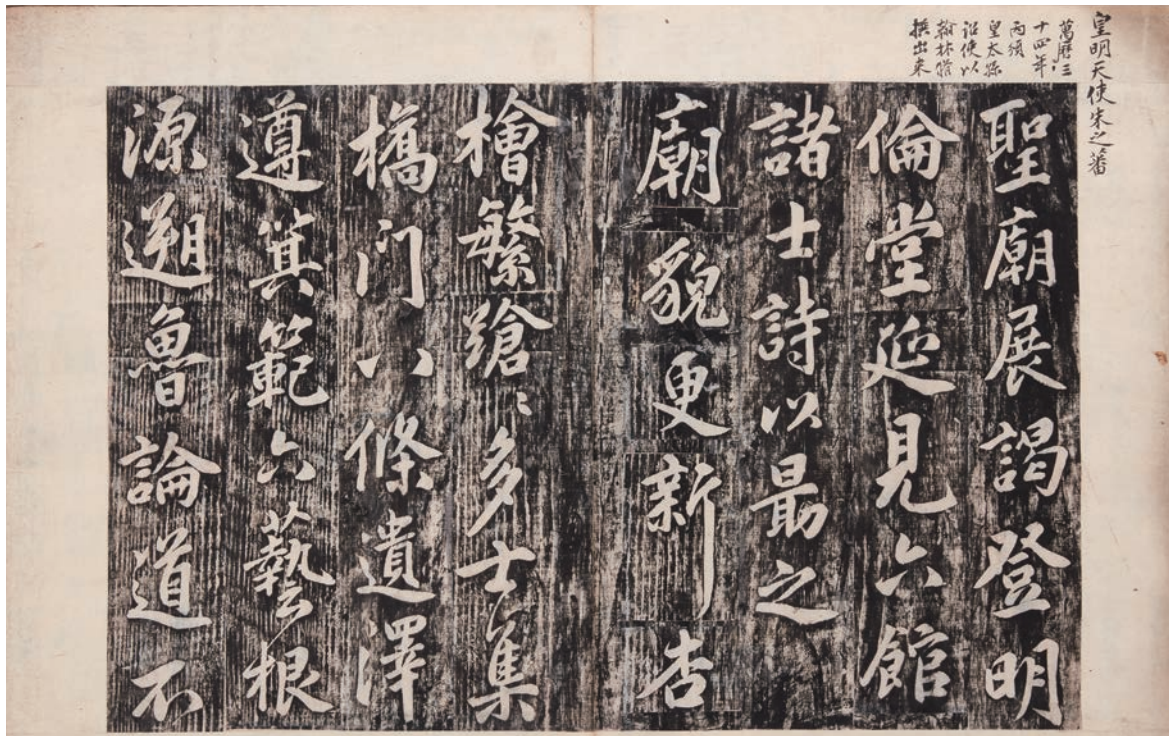 皇明天使朱之蕃
萬曆三
十四年
頒
皇太孫
詔使以
翰林修
撰出来
聖廟展謁登明
倫堂延見六館
諸士詩以最之
廟貌更新杏
檜繁蹌〻多士集
橋门八條遺澤
遵箕範六藝根
源遡魯論道不